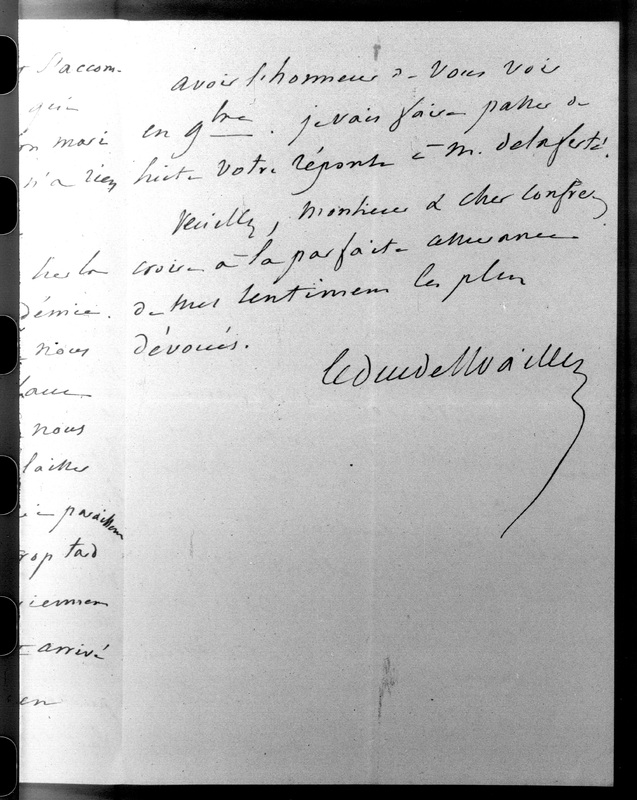 avoir l'honneur de vous voir
en 9bre. je vais faire passer de
suite votre réponse à M. de la ferté.
Veuillez, Monsieur & cher confrere
croire à la parfaite assurance
de mes sentimens les plus
dévoués.
le duc de Noailles
r s'accom-
qui
on mari
n'a rien
démie.
nous
nous
laisser
paraissen
rop tard
arrivé
en